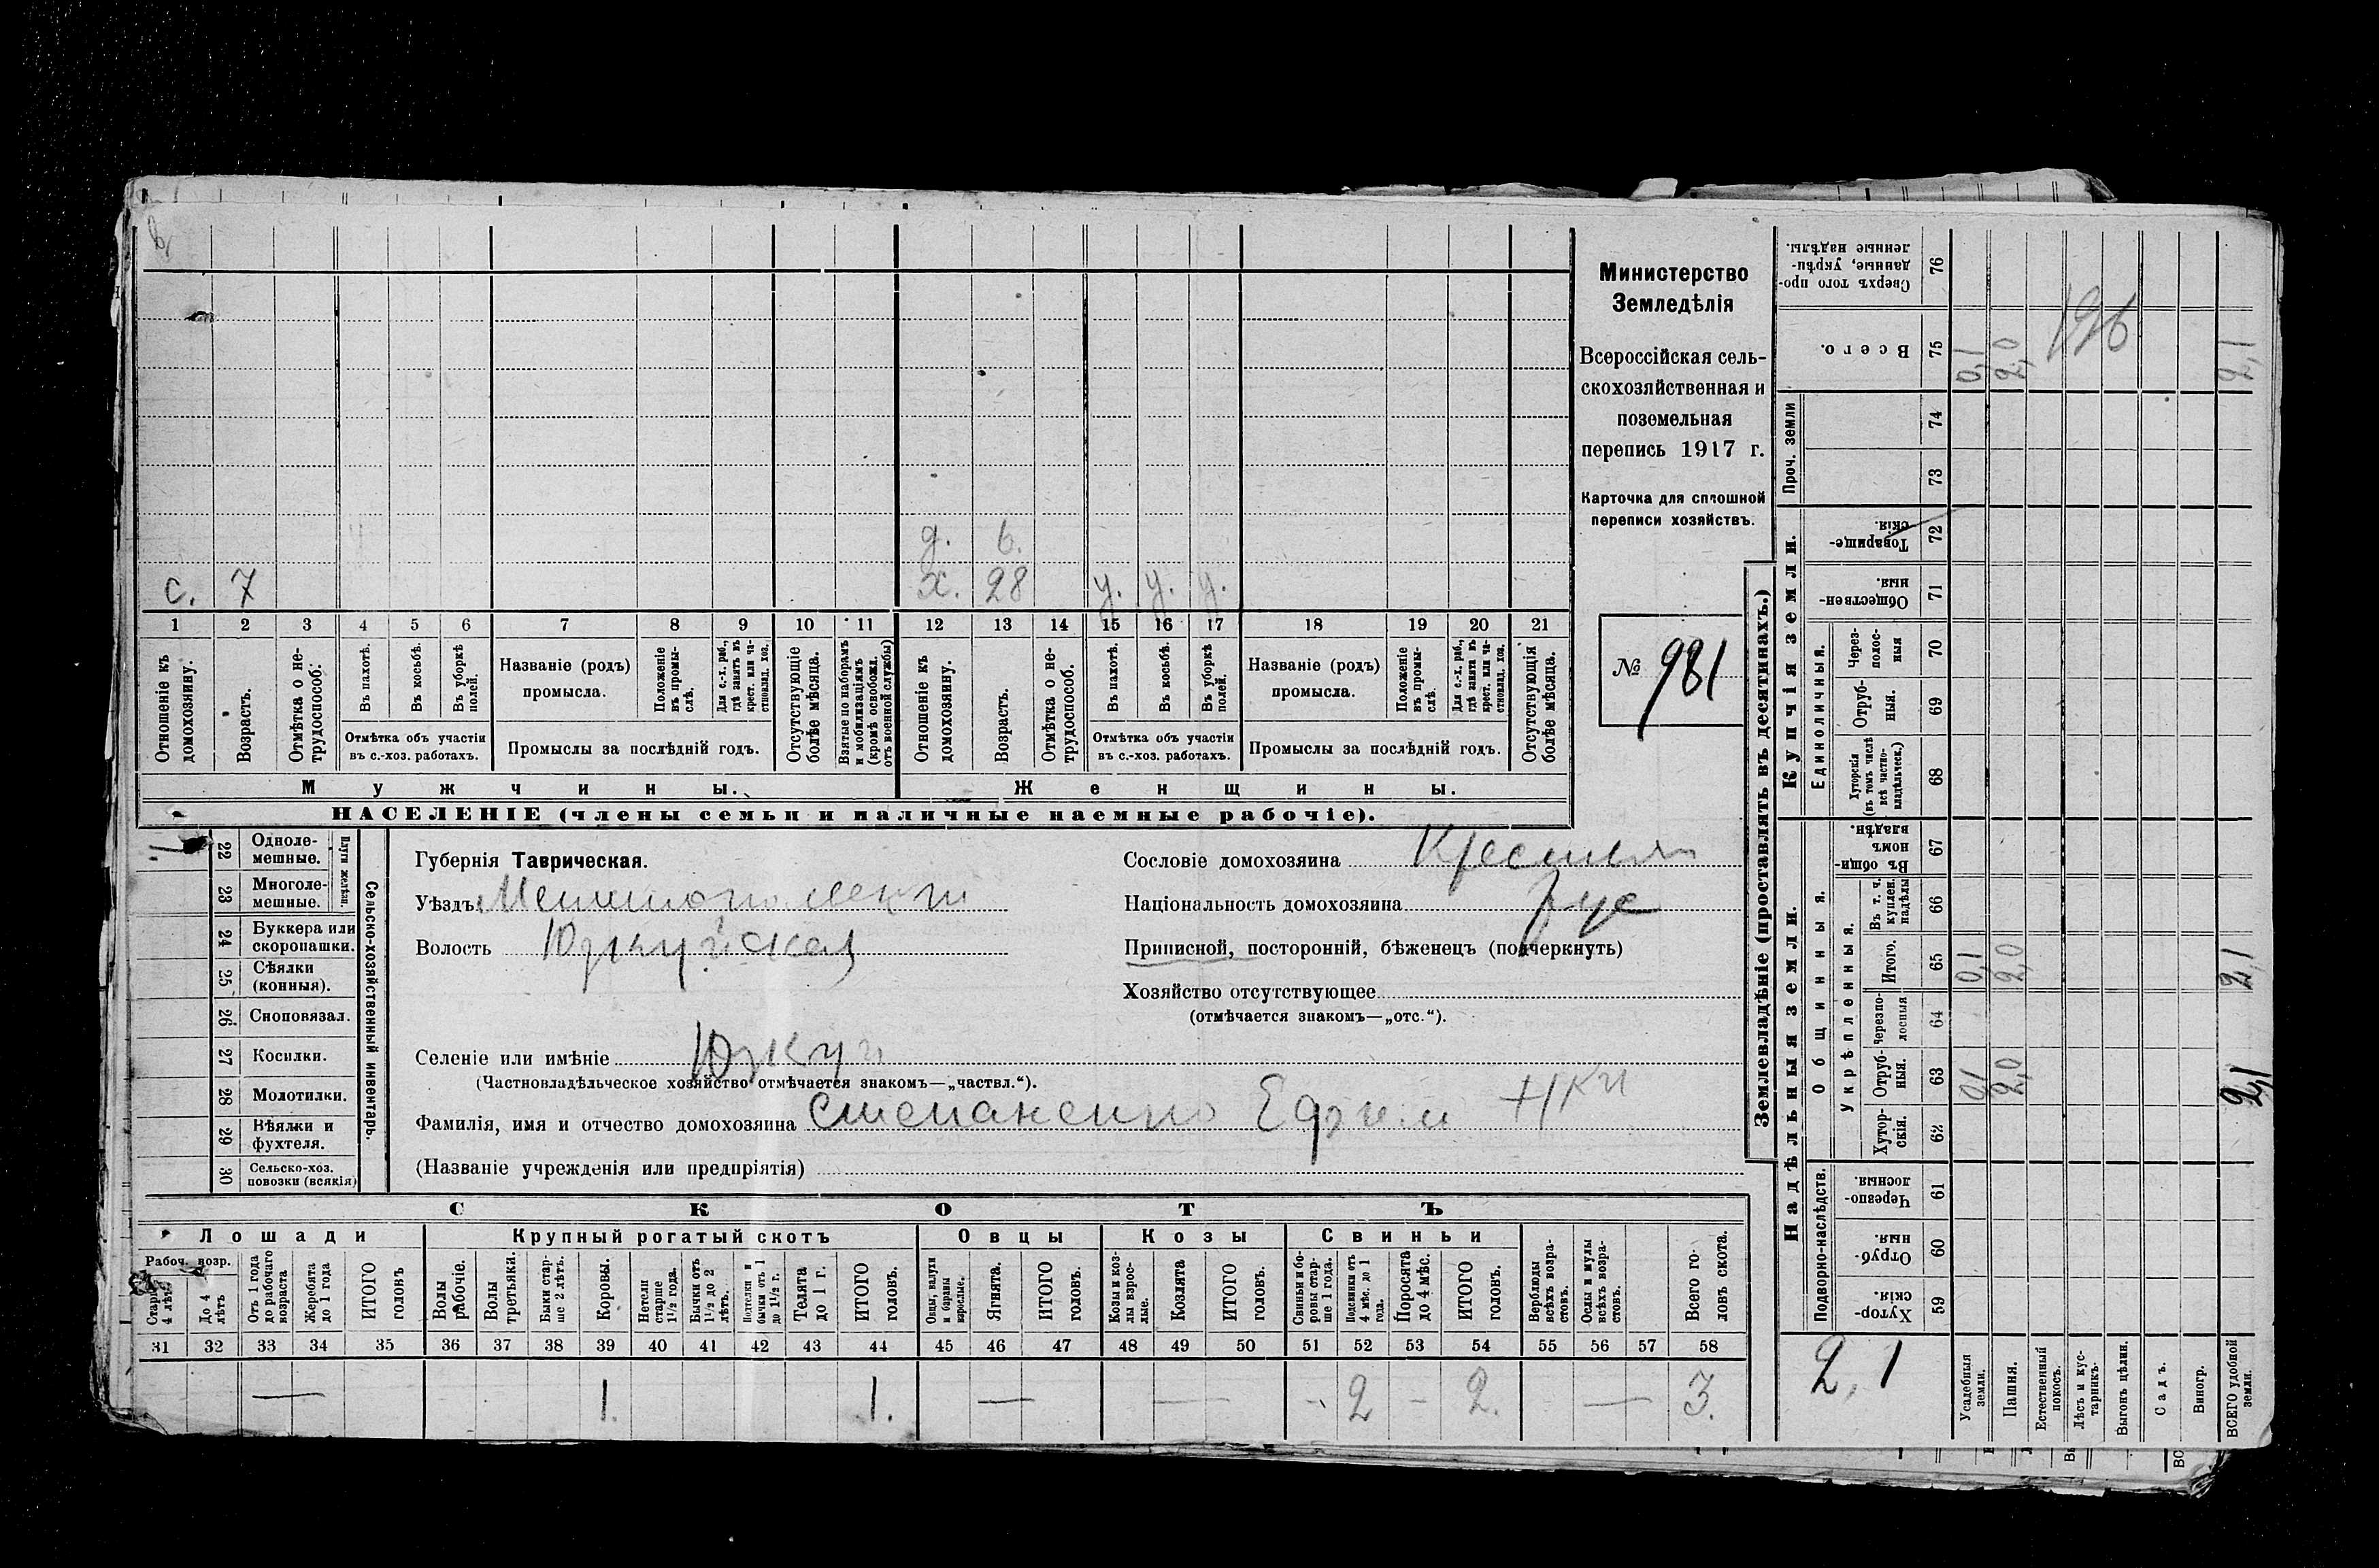 Министерство
Земледѣлія
Всероссійская сель-
скохозяйственная и
поземельная
перепись 1917 г.
Карточка для сплошной
переписи хозяйствъ.
№ 981
д. 6.
с. 7 х. 28 у. у. у.
1 2 3 4 5 6 7 8 9 10 11 12 13 14 15 16 17 18 19 20 21
Отношеніе къ домохозяину.
Возрастъ.
Отмѣтка о не-трудоспособ.
Въ пахотѣ.
Въ косьбѣ.
Въ уборкѣ полей.
Отмѣтка объ участіи
въ с.-хоз. работахъ.
Названіе (родъ)
промысла.
Положеніе въ промы-слѣ.
Для с.-х. раб., гдѣ занятъ въ крест. или ча-стновлад. хоз.
Промыслы за послѣдній годъ.
Отсутствующіе болѣе мѣсяца.
Взятые по наборамъ и мобилизаціямъ (кромѣ освобожд. отъ военной службы)
Отношеніе къ домохозяину.
Возрастъ.
Отмѣтка о не-трудоспособ.
Въ пахотѣ.
Въ косьбѣ.
Въ уборкѣ полей.
Отмѣтка объ участіи
въ с.-хоз. работахъ.
Названіе (родъ)
промысла.
Положеніе въ промы-слѣ.
Для с.-х. раб., гдѣ занята въ крест. или ча-стновлад. хоз.
Промыслы за послѣдній годъ.
Отсутствующія болѣе мѣсяца.
Мужчины.
Женщины.
НАСЕЛЕНІЕ (члены семьи и наличные наемные рабочіе).
22 Одноле-мешные.
23 Многоле-мешные.
Плуги желѣзн.
24 Буккера или скоропашки.
25 Сѣялки (конныя).
26 Сноповязал.
27 Косилки.
28 Молотилки.
29 Вѣялки и фухтеля.
30 Сельско-хоз. повозки (всякія)
Сельско-хозяйственный инвентарь.
Губернія Таврическая.
Уѣздъ Мелитопольскій
Волость Юзкуйская
Селеніе или имѣніе Юзкуи
(Частновладѣльческое хозяйство отмѣчается знакомъ—„частвл.“).
Фамилія, имя и отчество домохозяина Степаненко Ефим
(Названіе учрежденія или предпріятія)
Сословіе домохозяина Крестьян
Національность домохозяина рус
Приписной, посторонній, бѣженецъ (подчеркнуть)
Хозяйство отсутствующее
(отмѣчается знакомъ—„отс.“).
СКОТЪ
Лошади Крупный рогатый скотъ Овцы Козы Свиньи
Рабоч. возр.
Старше 4 лѣтъ
До 4 лѣтъ
Отъ 1 года до рабочаго возраста
Жеребята до 1 года
ИТОГО головъ
Волы рабочіе.
Волы третьяки.
Быки стар-ше 2 лѣтъ.
Коровы.
Нетели старше 1½ года.
Бычки отъ 1½ до 2 лѣтъ.
Подтелки и бычки отъ 1 до 1½ г.
Телята до 1 г.
ИТОГО головъ.
Овцы, валухи и бараны взрослые.
Ягнята.
ИТОГО головъ.
Козы и коз-лы взрос-лые.
Козлята
ИТОГО головъ.
Свиньи и бо-ровы стар-ше 1 года.
Подсвинки отъ 4 мѣс. до 1 года.
Поросята до 4 мѣс.
ИТОГО головъ.
Верблюды всѣхъ возра-стовъ.
Ослы и мулы всѣхъ возра-стовъ.
Всего го-ловъ скота.
31 32 33 34 35 36 37 38 39 40 41 42 43 44 45 46 47 48 49 50 51 52 53 54 55 56 57 58
— 1. 1. — — - 2 - 2. — 3.
Землевладѣніе (проставлять въ десятинахъ.)
Надѣльныя земли.
Купчія земли.
Проч. земли
Подворно-наслѣдств.
Общинныя.
Укрѣпленныя.
Единоличныя.
Сверхъ того про-данные, укрѣп-ленные надѣлы. 76
Всего. 75 0,1 2,0 196 2,1
74
73
Товарище-скія. 72
Обществен-ныя. 71
Через-полос-ныя 70
Отруб-ныя. 69
Хуторскія (въ томъ числѣ всѣ частно-владѣльческ.) 68
Въ общи-номъ владѣн. 67
Въ т. ч. куплен. надѣлы 66
Итого. 65 0,1 2,0 2,1
Черезпо-лосныя 64
Отруб-ныя. 63 0,1 2,0 2,1
Хутор-скія. 62
Черезпо-лосныя. 61
Отруб-ныя. 60
Хутор-скія. 59
2,1
Усадебныя земли.
Пашня.
Естественный покосъ.
Лѣсъ и кус-тарникъ.
Выгонъ цѣлин.
Садъ.
Виногр.
ВСЕГО удобной земли.